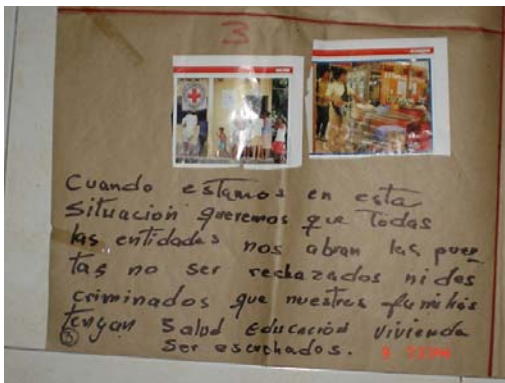 3
Cuando estamos en esta
situación queremos que todas
las entidades nos abran las puer
tas no ser rechazados ni des
criminados que nuestras familias
tengan Salud Educación vivienda
3 Ser escuchados.